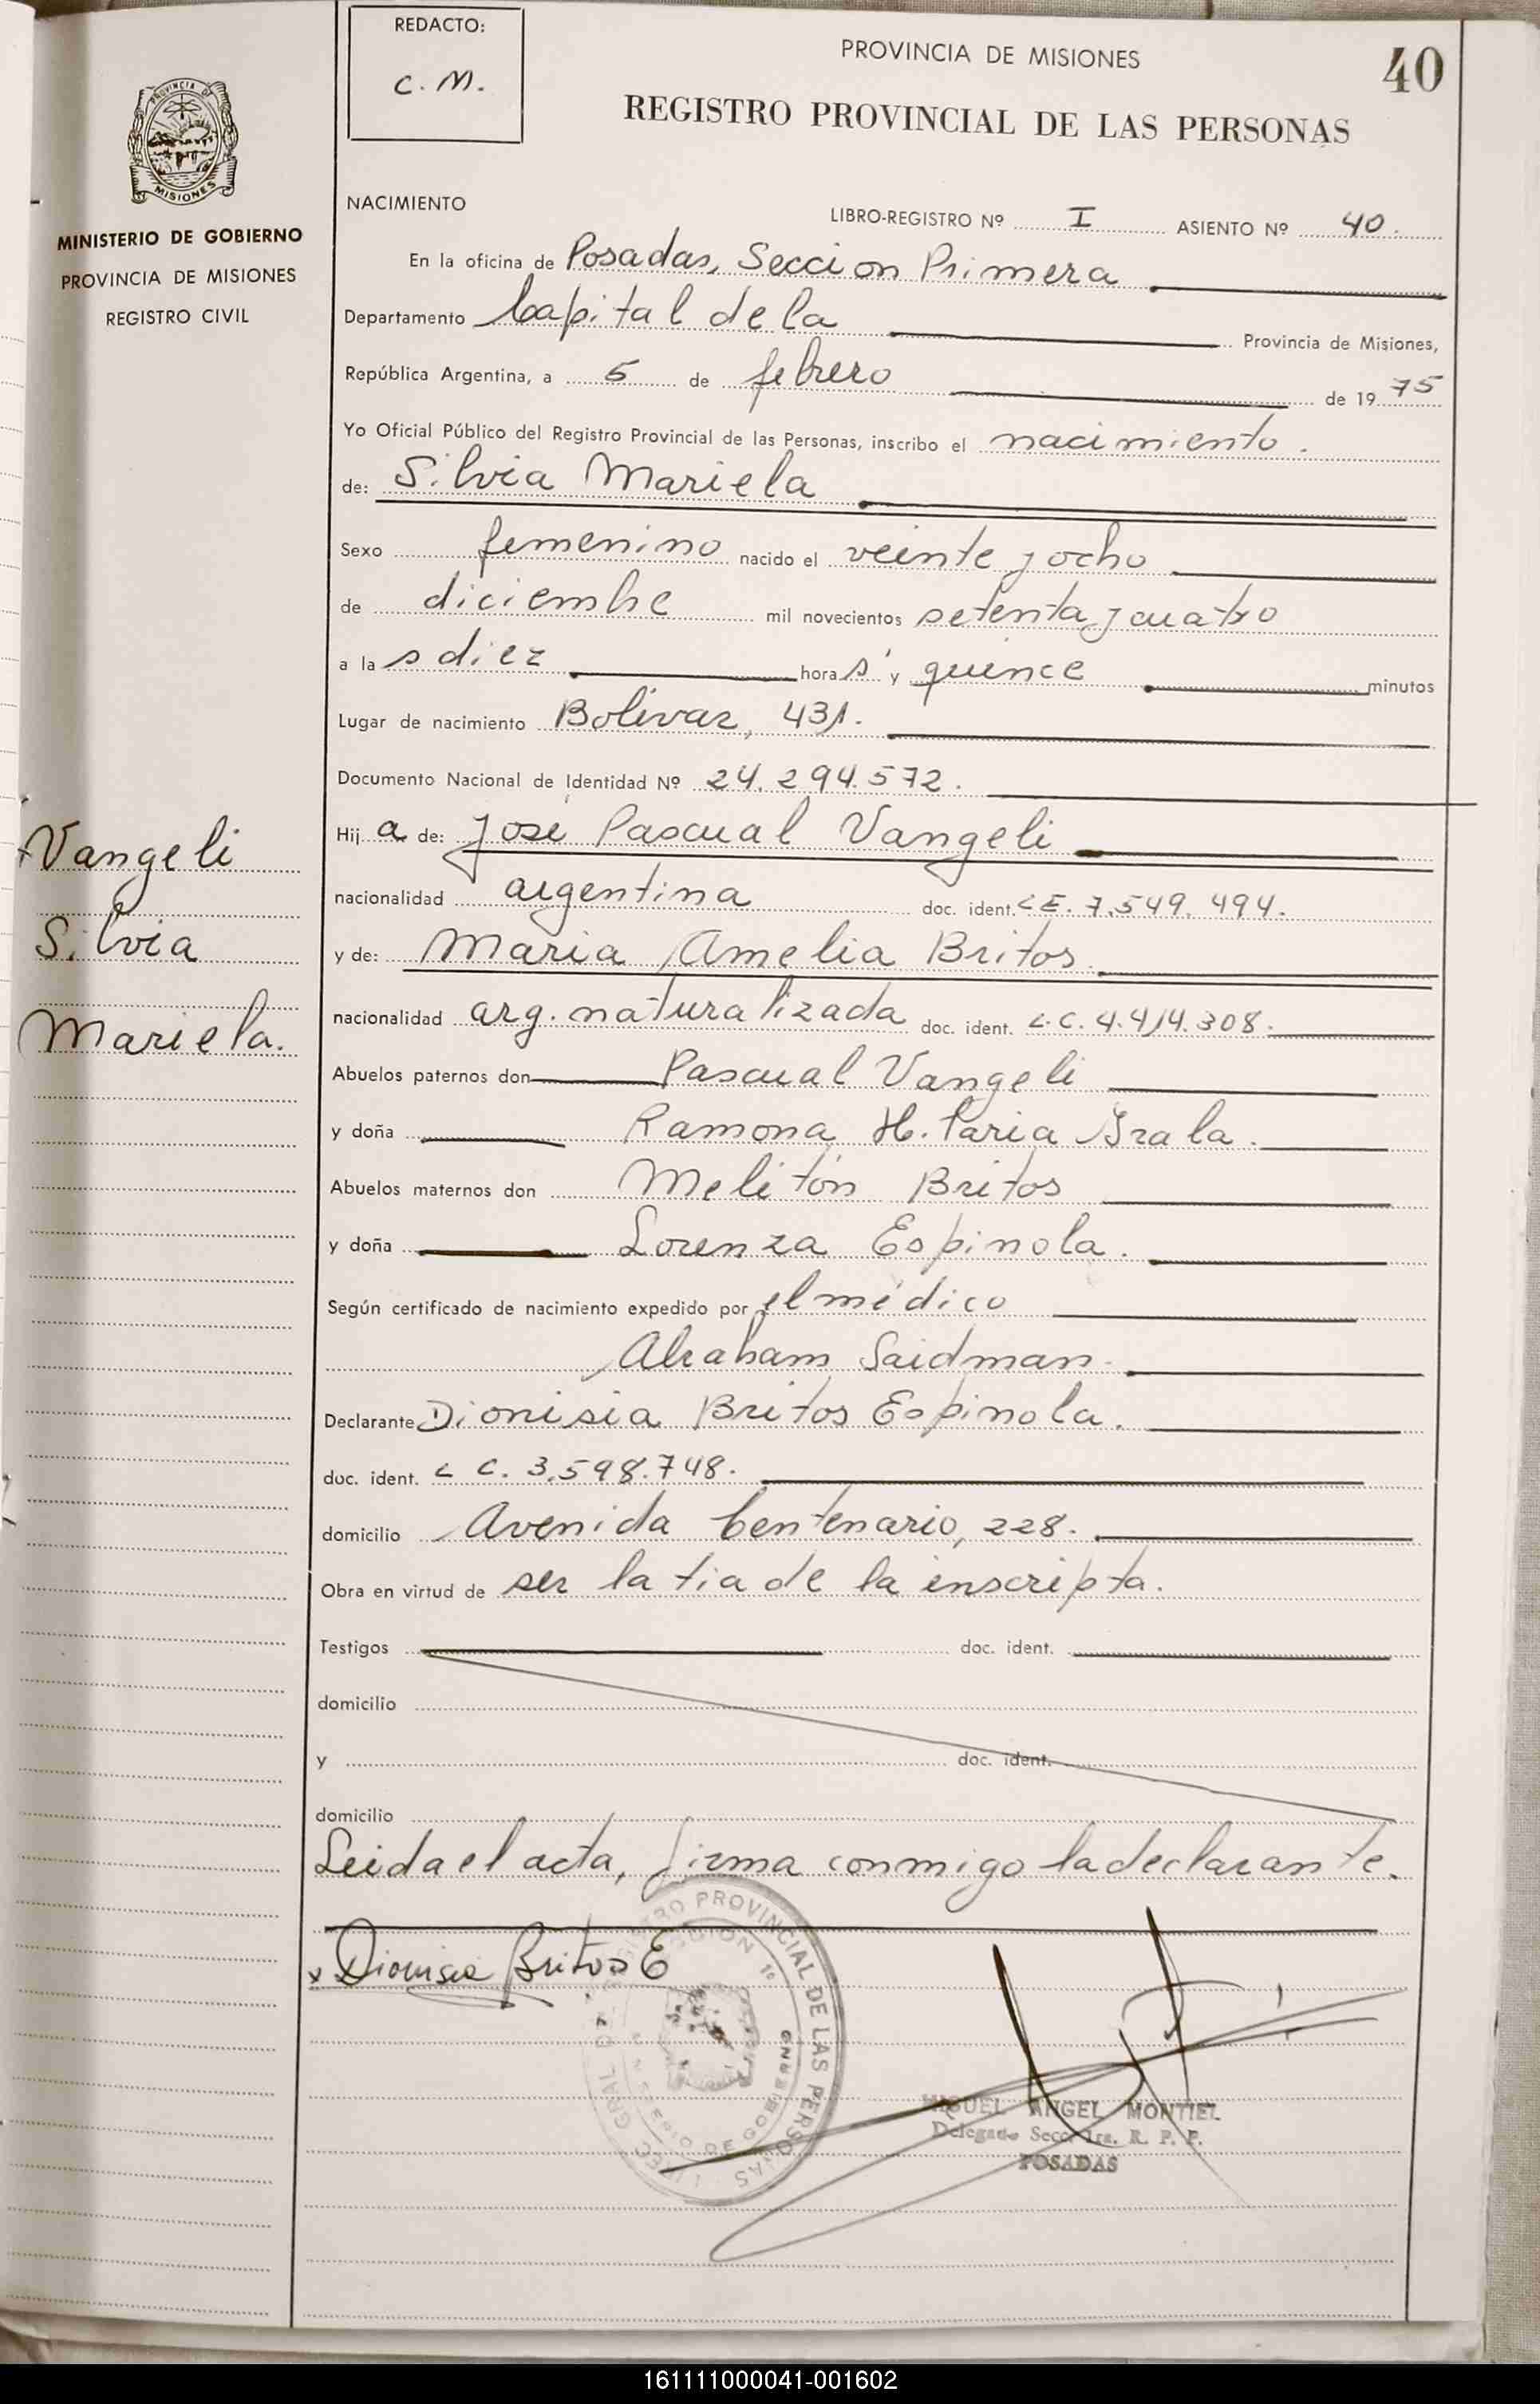 REDACTO:
C. M.
PROVINCIA DE MISIONES
40
REGISTRO PROVINCIAL DE LAS PERSONAS
MISIONES
MINISTERIO DE GOBIERNO
PROVINCIA DE MISIONES
REGISTRO CIVIL
NACIMIENTO
LIBRO-REGISTRO Nº I ASIENTO Nº 40.
En la oficina de Posadas, Seccion Primera
Departamento Capital de la Provincia de Misiones,
República Argentina, a 5 de febrero de 1975
Yo Oficial Público del Registro Provincial de las Personas, inscribo el nacimiento.
de: Silvia Mariela
Sexo femenino nacido el veinte y ocho
de diciembre mil novecientos setenta y cuatro
a las diez horas y quince minutos
Lugar de nacimiento Bolívar, 431.
Documento Nacional de Identidad Nº 24.294.572.
Hija de: José Pascual Vangeli
nacionalidad argentina doc. ident. L E. 7.549.494.
y de: Maria Amelia Britos
nacionalidad arg. naturalizada doc. ident. L.C. 4.414.308.
Abuelos paternos don Pascual Vangeli
y doña Ramona Hilaria Irala.
Abuelos maternos don Melitón Britos
y doña Lorenza Espinola.
Según certificado de nacimiento expedido por el médico
Abraham Saidman.
Declarante Dionisia Britos Espinola.
doc. ident. L C. 3.598.748.
domicilio Avenida Centenario, 228.
Obra en virtud de ser la tia de la inscripta.
Testigos doc. ident.
domicilio
y doc. ident.
domicilio
Leida el acta, firma conmigo la declarante.
Vangeli
Silvia
Mariela.
x x Dionisia Britos E
MIGUEL ANGEL MONTIEL
Delegado Secc. 1ra. R. P. P.
POSADAS
161111000041-001602